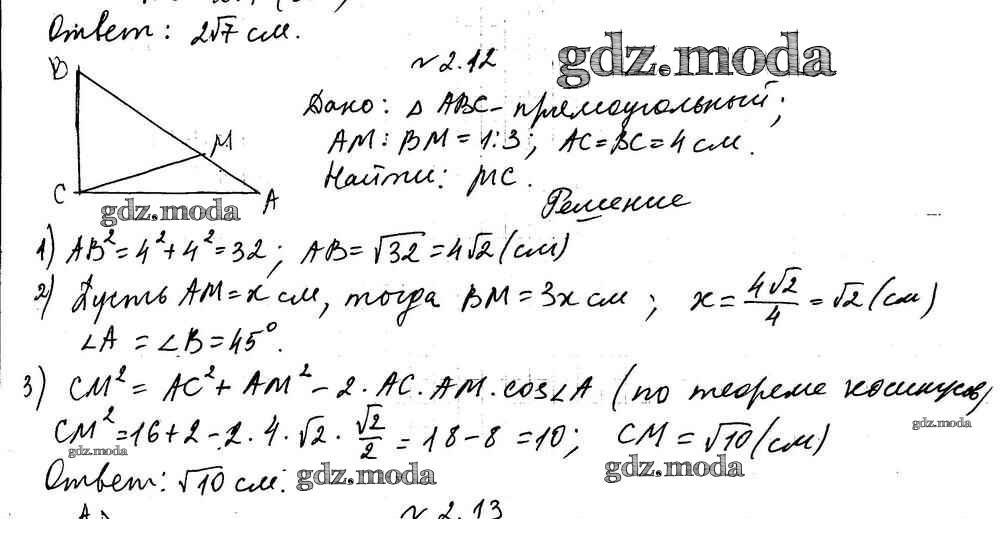 Ответ: 2√7 см.
№ 2.12
gdz.moda
B
Дано: Δ ABC - прямоугольный;
M
AM : BM = 1:3; AC = BC = 4 см.
Найти: MC.
C
A
gdz.moda
Решение
1) AB² = 4² + 4² = 32; AB = √32 = 4√2 (см)
2) Пусть AM = x см, тогда BM = 3x см; x = 4√2/4 = √2 (см)
∠A = ∠B = 45°.
3) CM² = AC² + AM² - 2 · AC · AM · cos∠A (по теореме косинусов)
CM² = 16 + 2 - 2 · 4 · √2 · √2/2 = 18 - 8 = 10; CM = √10 (см)
gdz.moda
gdz.moda
Ответ: √10 см.
gdz.moda
gdz.moda
A
№ 2.13